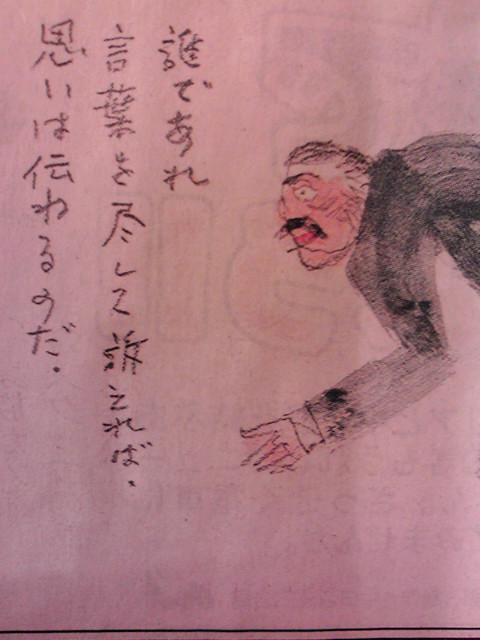 誰であれ
言葉を尽して訴えれば、
思いは伝わるのだ。